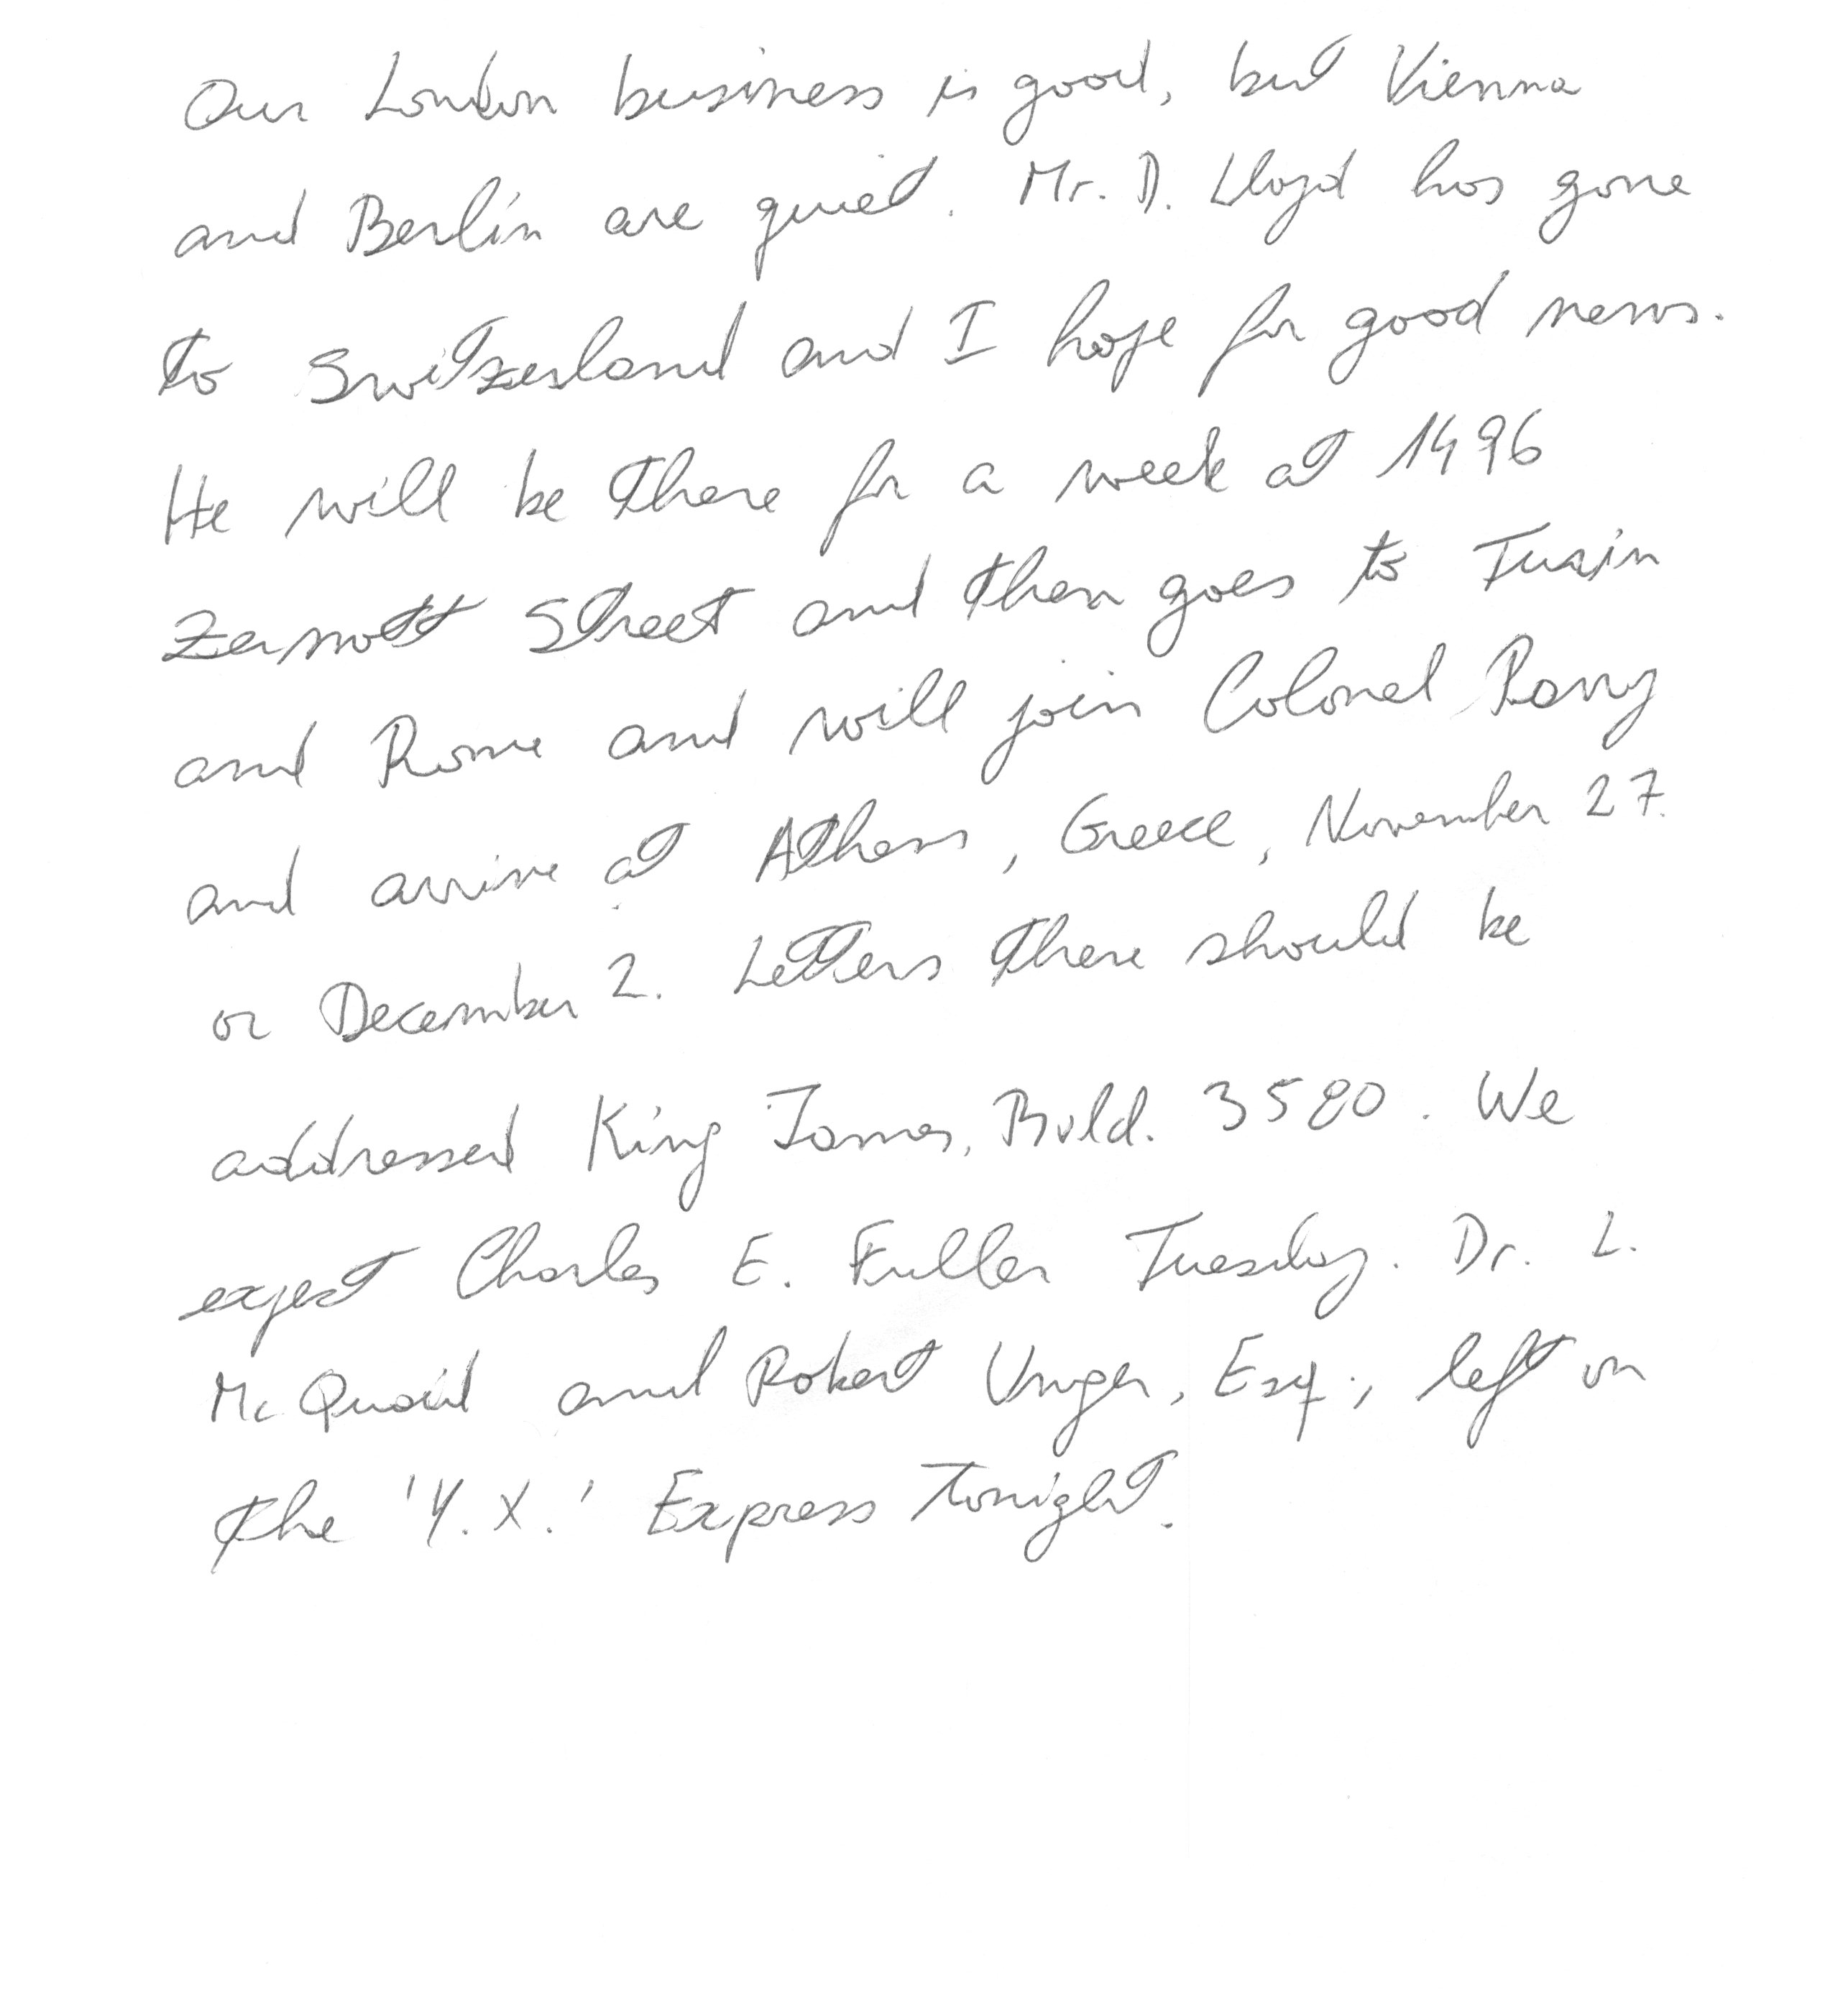 Our London business is good, but Vienna
and Berlin are quiet. Mr. D. Lloyd has gone
to Switzerland and I hope for good news.
He will be there for a week at 1496
Zermott Street and then goes to Turin
and Rome and will join Colonel Parry
and arrive at Athens, Greece, November 27.
or December 2. Letters there should be
addressed King James, Bvld. 3580. We
expect Charles E. Fuller Tuesday. Dr. L.
McQuaid and Robert Unger, Esq., left on
the 'Y.X.' Express tonight.